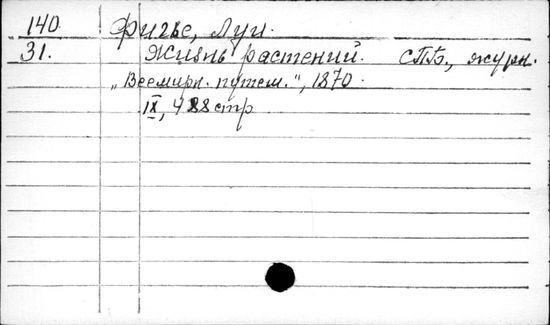 140. Фигье, Луи.
31. Жизнь растений. СПБ., журн.
„Всемирн. путеш.", 1870.
IX, 488 стр